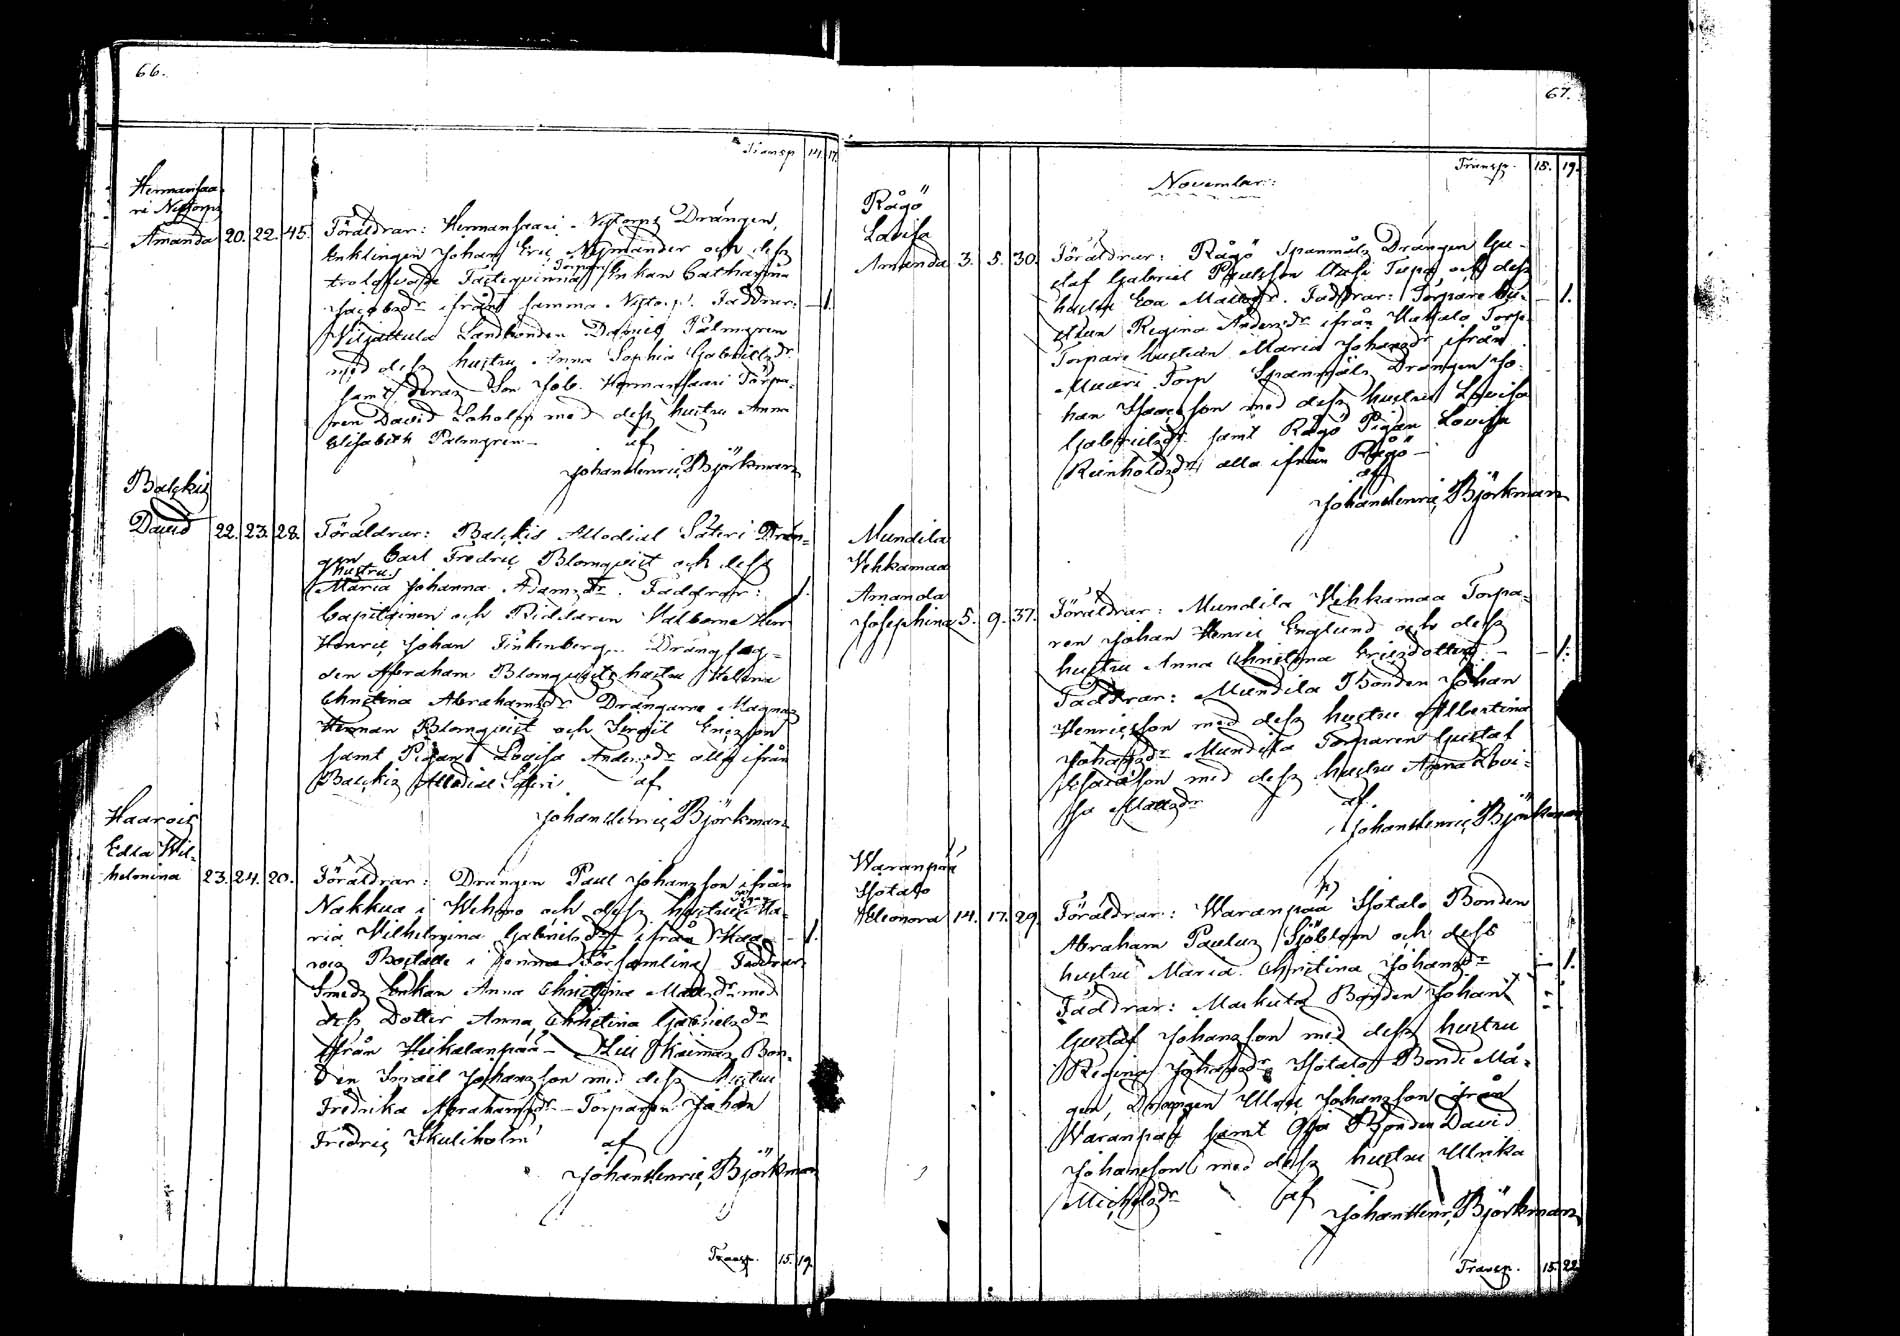 66.
Transp 14. 17.
Hermansaa-
ri Nytorps
Amanda 20. 22. 45. Föräldrar: Hermansaari Nytorps Drängen,
Enklingen Johan Eric Nymander och dess
trolofvade Fästeqvinna Torpare Enkan Catharina
Jacobsdr ifrån samma Nytorp. Faddrar: – 1.
Viljattula Landbonden Daniel Palmgren
med dess hustru Anna Sophia Gabrielsdr
samt deras Son Job. Hermansaari Torpa-
ren David Laholm med dess hustru Anna
Elisabeth Palmgren – af
Johan Henric Björkman
Balckis
David 22. 23. 28. Föräldrar: Balckis Allodial Säteri Drän-
gen Carl Fredric Blomqvist och dess
hustru
Maria Johanna Adamsdr. Faddrar: 1.
Capitainen och Riddaren Välborne Herr
Henric Johan Finkenberg. Dräng
den Abraham Blomqvists hustru Helena
Christina Abrahamsdr Drängarne Magnus
Herman Blomqvist och Israël Ericsson
samt Pigan Lovisa Andersdr alla ifrån
Balckis Allodial Säteri. af
Johan Henric Björkman
Haarois
Edla Wil-
helmina 23. 24. 20. Föräldrar: Drängen Paul Johansson ifrån
Nakkua i Wehmo och dess hustru Ma-
ria Vilhelmina Gabrielsdr ifrån Haa- – 1.
rois Boställe i denna Församling Faddrar:
Smeds Enkan Anna Christina Mattsdr med
dess Dotter Anna Christina Gabrielsdr
ifrån Heikolanpää – Skaimas Bon-
den Israël Johansson med dess hustru
Fredrika Abrahamsdr – Torparen Johan
Fredric Skuliholm af
Johan Henric Björkman
Transp. 15. 19.
67.
Transp. 15. 19.
November:
Rågö
Lovisa
Amanda 3. 5. 30. Föräldrar: Rågö Spanmåls Drängen Gu-
staf Gabriel Paulsson och dess
hustru Eva Mattsdr. Faddrar: Torpare hu- – 1.
strun Regina Andersdr ifrån Torp.
Torpare hustrun Maria Johansdr ifrån
Torp Spanmåls Drängen Jo-
han Isacsson med dess hustru Lovisa
Gabrielsdr samt Rågö Pigan Lovisa
Reinholdsdr alla ifrån Rågö –
af
Johan Henric Björkman
Mundila
Vehkamaa
Amanda
Josephina 5. 9. 37. Föräldrar: Mundila Vehkamaa Torpa-
ren Johan Henric Englund och dess
hustru Anna Christina Ericsdotter – – 1.
Faddrar: Mundila Bonden Johan
Henricsson med dess hustru Albertina
Johansdr Mundila Torparen Gustaf
Esaiasson med dess hustru Anna Lovi-
sa Mattsdr af.
Johan Henric Björkman
Waranpää
Isotalo
Eleonora 14. 17. 29. Föräldrar: Waranpää Isotalo Bonden
Abraham Paulus Sjöblom och dess
hustru Maria Christina Johansdr – 1.
Faddrar: Markula Bonden Johan
Gustaf Johansson med dess hustru
Regina Johansdr Isotalo Bonde Må-
gen, Drängen Johansson ifrån
Waranpää samt Bonden David
Johansson med dess hustru Ulrika
Michelsdr af
Johan Henr. Björkman
Transp. 15. 22.